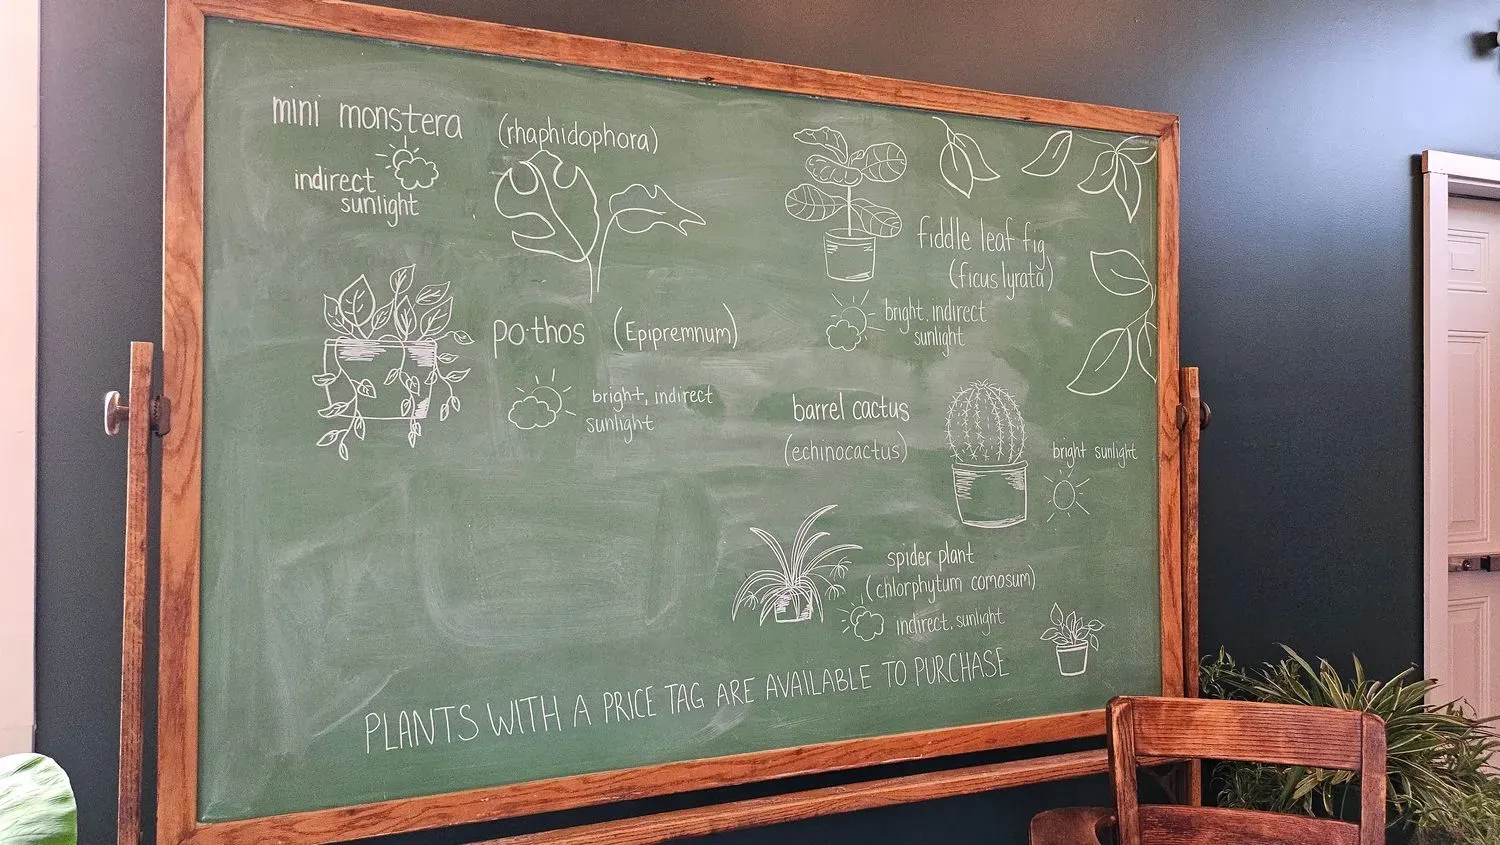 mini monstera
(rhaphidophora)
indirect
sunlight
po·thos
(Epipremnum)
bright, indirect
sunlight
fiddle leaf fig
(ficus lyrata)
bright, indirect
sunlight
barrel cactus
(echinocactus)
bright sunlight
spider plant
(chlorphytum comosum)
indirect, sunlight
PLANTS WITH A PRICE TAG ARE AVAILABLE TO PURCHASE